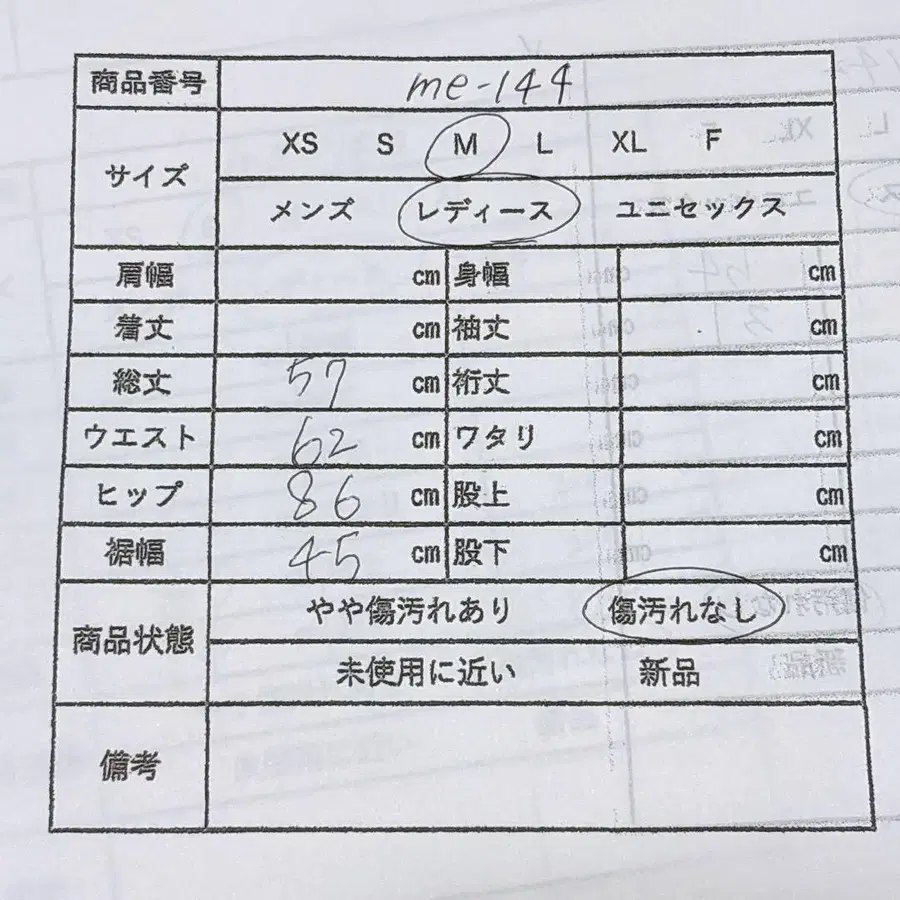 商品番号 me-144
サイズ XS S M L XL F
メンズ レディース ユニセックス
肩幅 cm 身幅 cm
着丈 cm 袖丈 cm
総丈 57 cm 裄丈 cm
ウエスト 62 cm ワタリ cm
ヒップ 86 cm 股上 cm
裾幅 45 cm 股下 cm
商品状態 やや傷汚れあり 傷汚れなし
未使用に近い 新品
備考